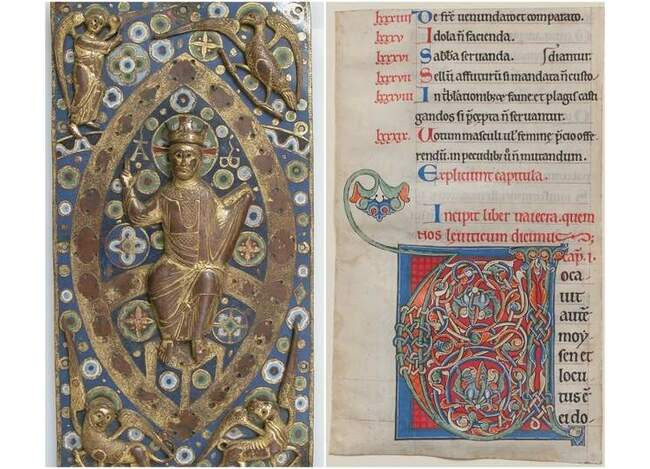 A ω
lxxxiiii De fr̄e uenundato et comparato.
lxxxv Idola n̄ facienda.
lxxxvi Sabba seruanda. diantur.
lxxxvii Bellū affuturū si mandata n̄ custo
lxxxviii In t̄blationib; ac fame et plagis casti
gandos si p̄cepta n̄ seruantur.
lxxxix Uotum masculi ul' femine p̄cio offe
rendū. in pecudib; ū n̄ mutandum.
Expliciunt capitula.
Incipit liber uaiecra. quem
nos leuiticum dicimus;
cap. i.
V
oca
uit
autē
moy
sen et
locu
tus ē
ei do